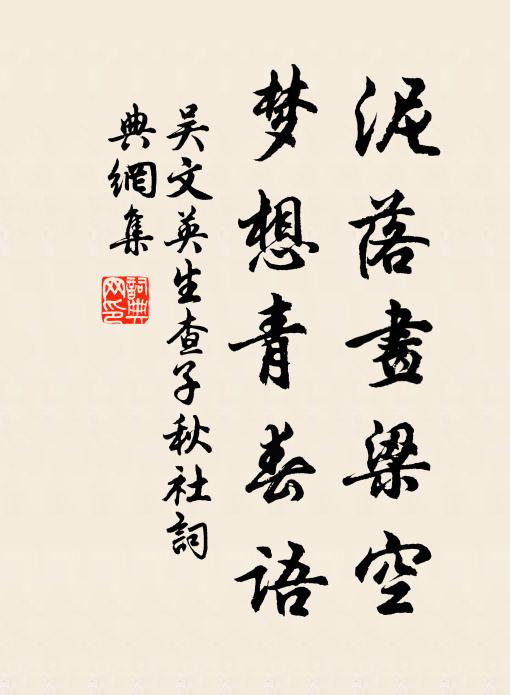 泥落畫梁空
梦想青春語
吴文英生查子秋社詞
典網集
詞典
网印